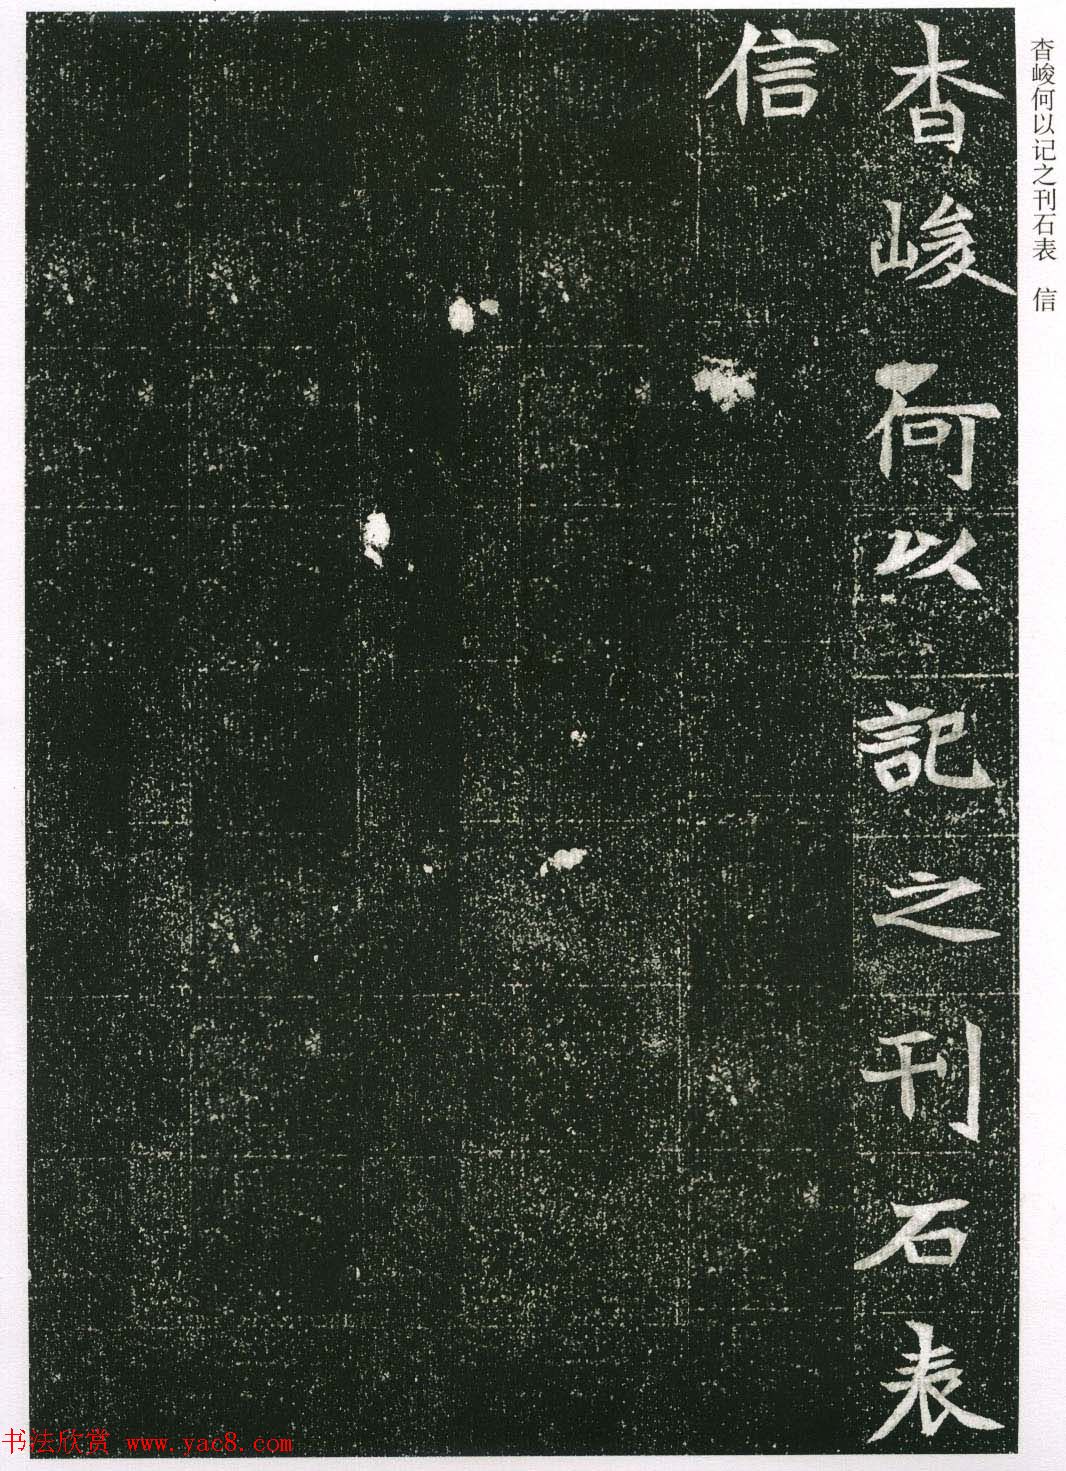 杳峻何以記之刊石表
信
杳峻何以记之刊石表 信
书法欣赏 www.yac8.com